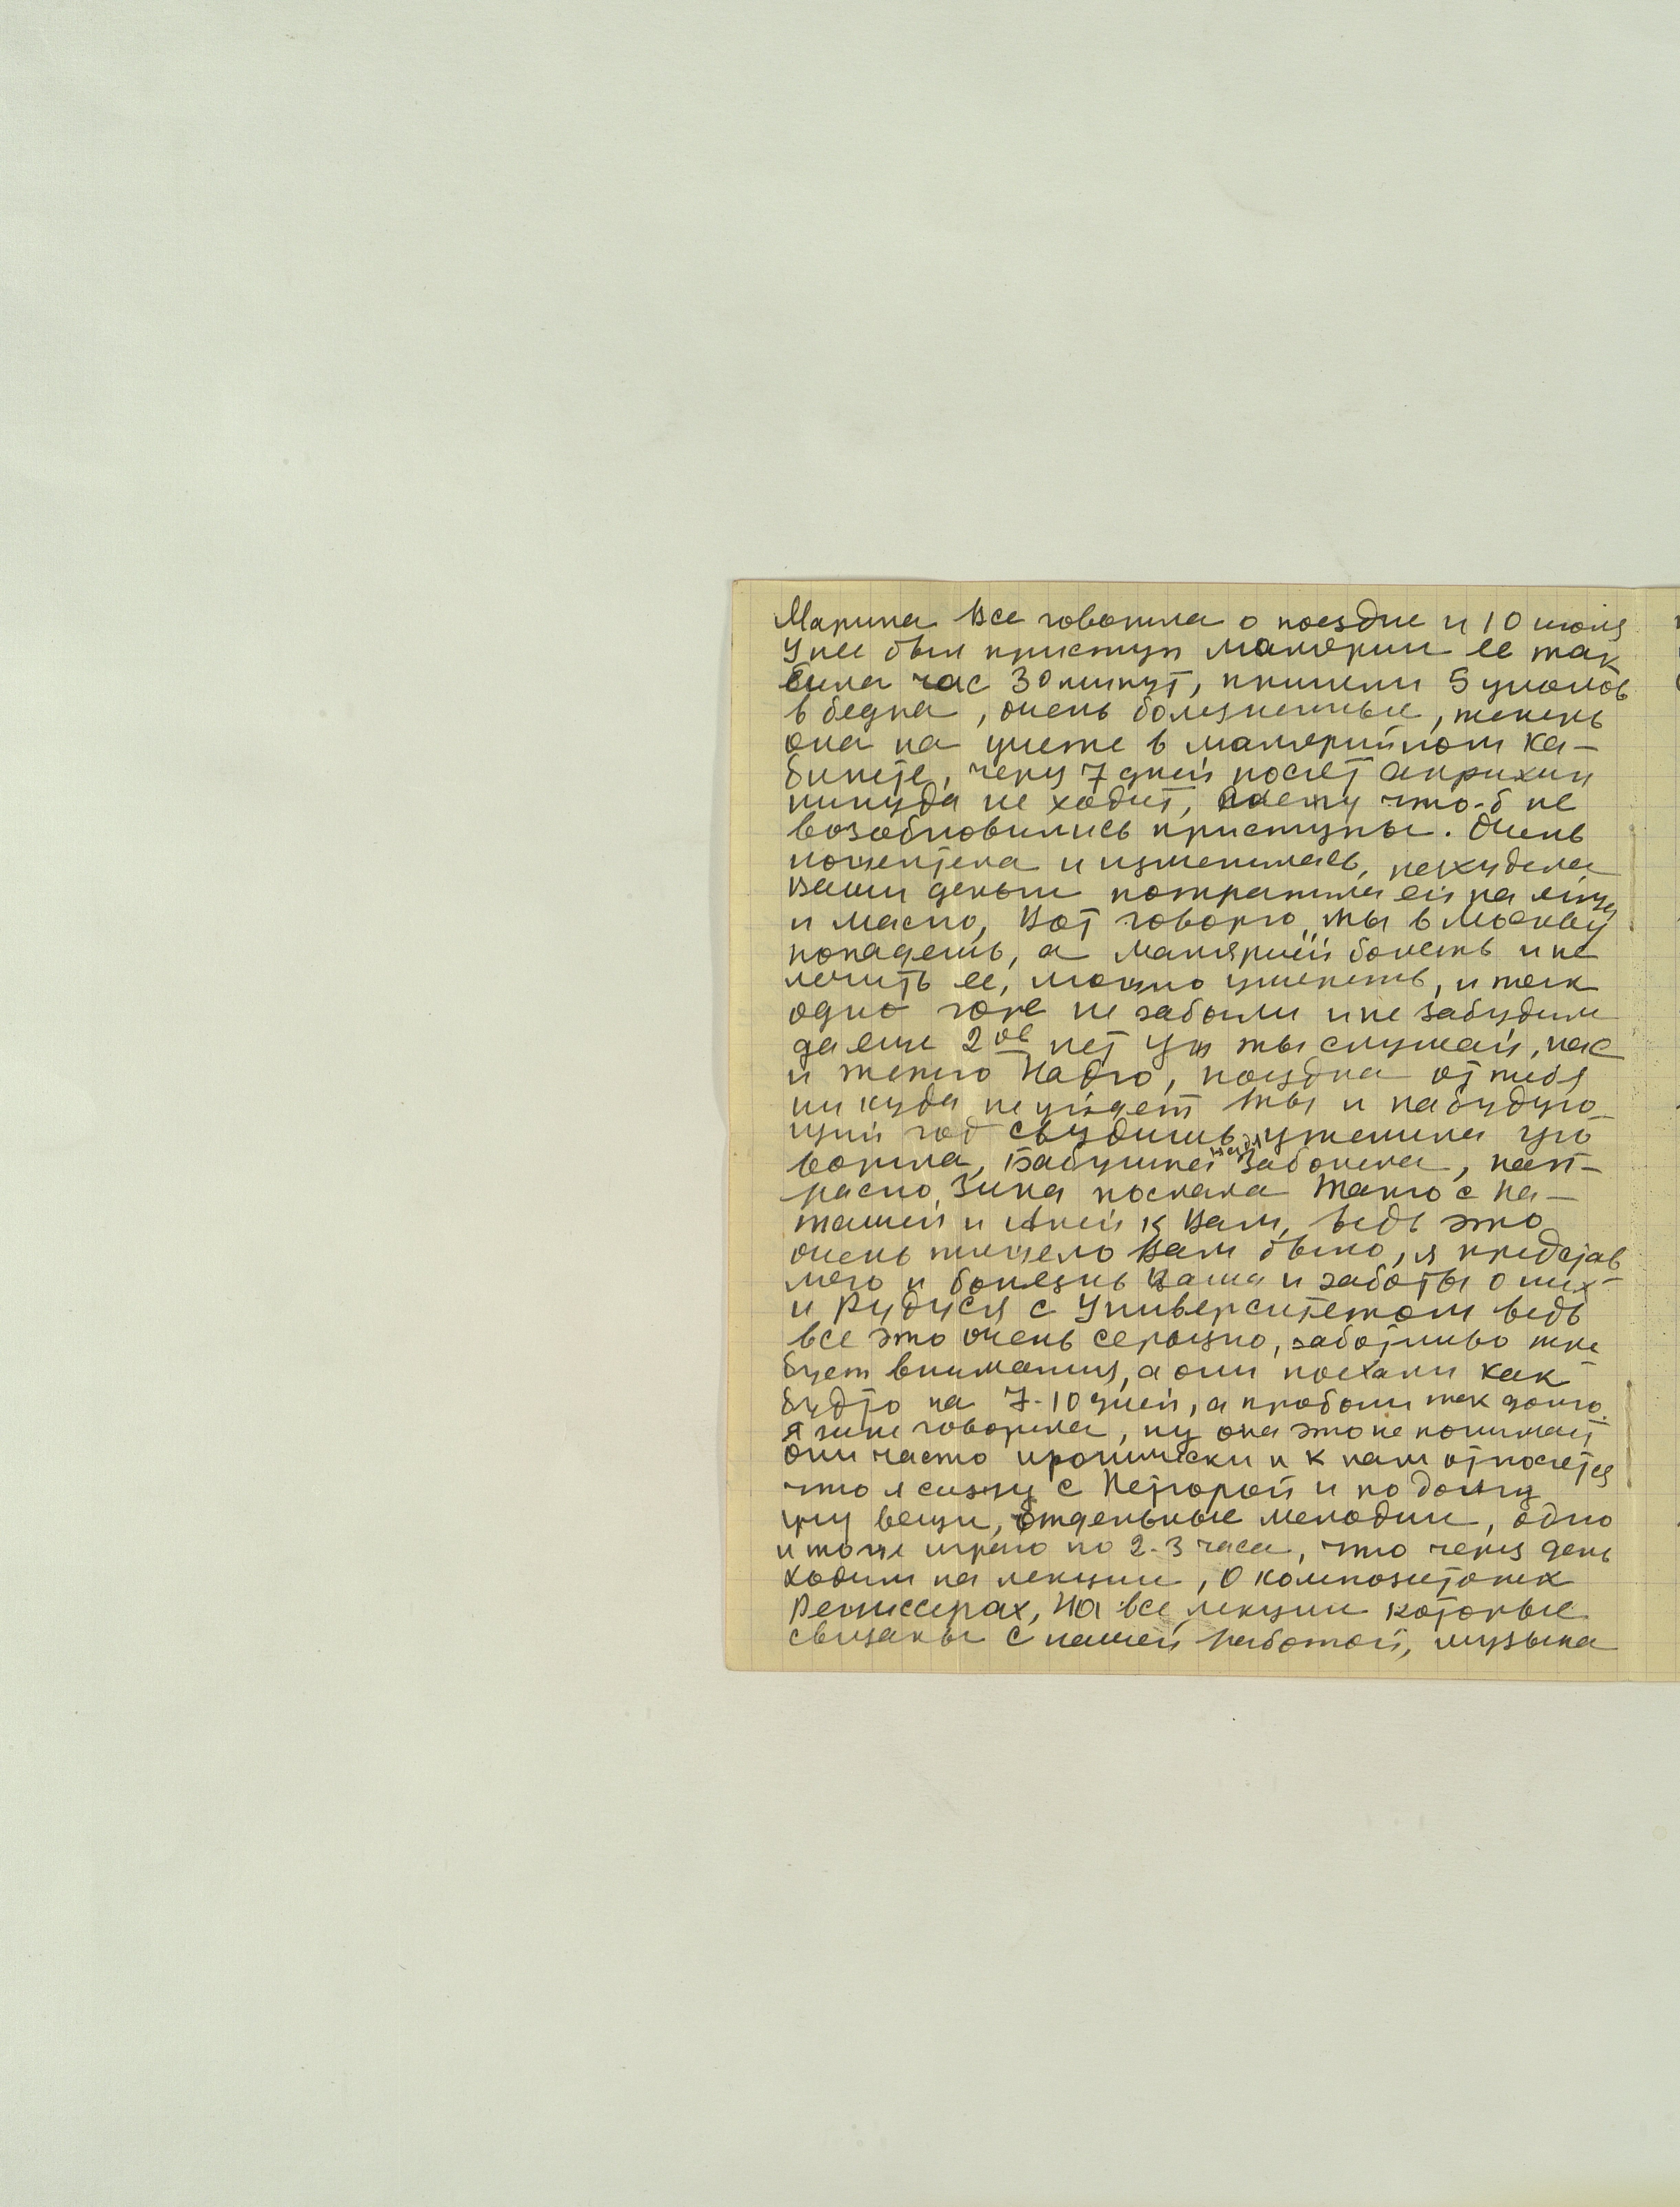 Марина все говорила о поездке и 10 июля
у нее был приступ малярии ее так
била час 30 минут, приняли 5 уколов
в бедра, очень болезненные, теперь
она на учете в малярийном ка-
бинете, через 7 дней после акрихин
никуда не ходит, что-б не
возобновились приступы. Очень
пожелтела и изменилась, похудела
Ваши деньги потратили ей на яйца
и масло, Вот говорю „ты в Москву
попадешь, а малярией болеть и не
лечить ее, можно умереть, и так
одно горе не забыли и не забудем
да еще 2ое нет уж ты слушай, нас
и тетю Надю, поездка от тебя
никуда не уйдет ты и на будую-
щий год съездишь, уго-
ворила, Бабушка заболела, нап-
расно, Зина послала Таню с На-
ташей и Аней к Вам, ведь это
очень тяжело Вам было, я представ
ляю и болезнь Ваша и заботы о них
и Рудуся с Университетом ведь
все это очень серьезно, заботливо тре
бует внимания, а они поехали как
будто на 7-10 дней, а пробыли так долго.
Я Зине говорила, ну она это не понимает
они часто иронически и к нам относятся
что я сижу с и по долгу
учу вещи, отдельные мелодии, одно
и тоже играю по 2-3 часа, что через день
ходим на лекции, о композиторах
Режиссерах, На все лекции которые
связаны с нашей работой, музыка